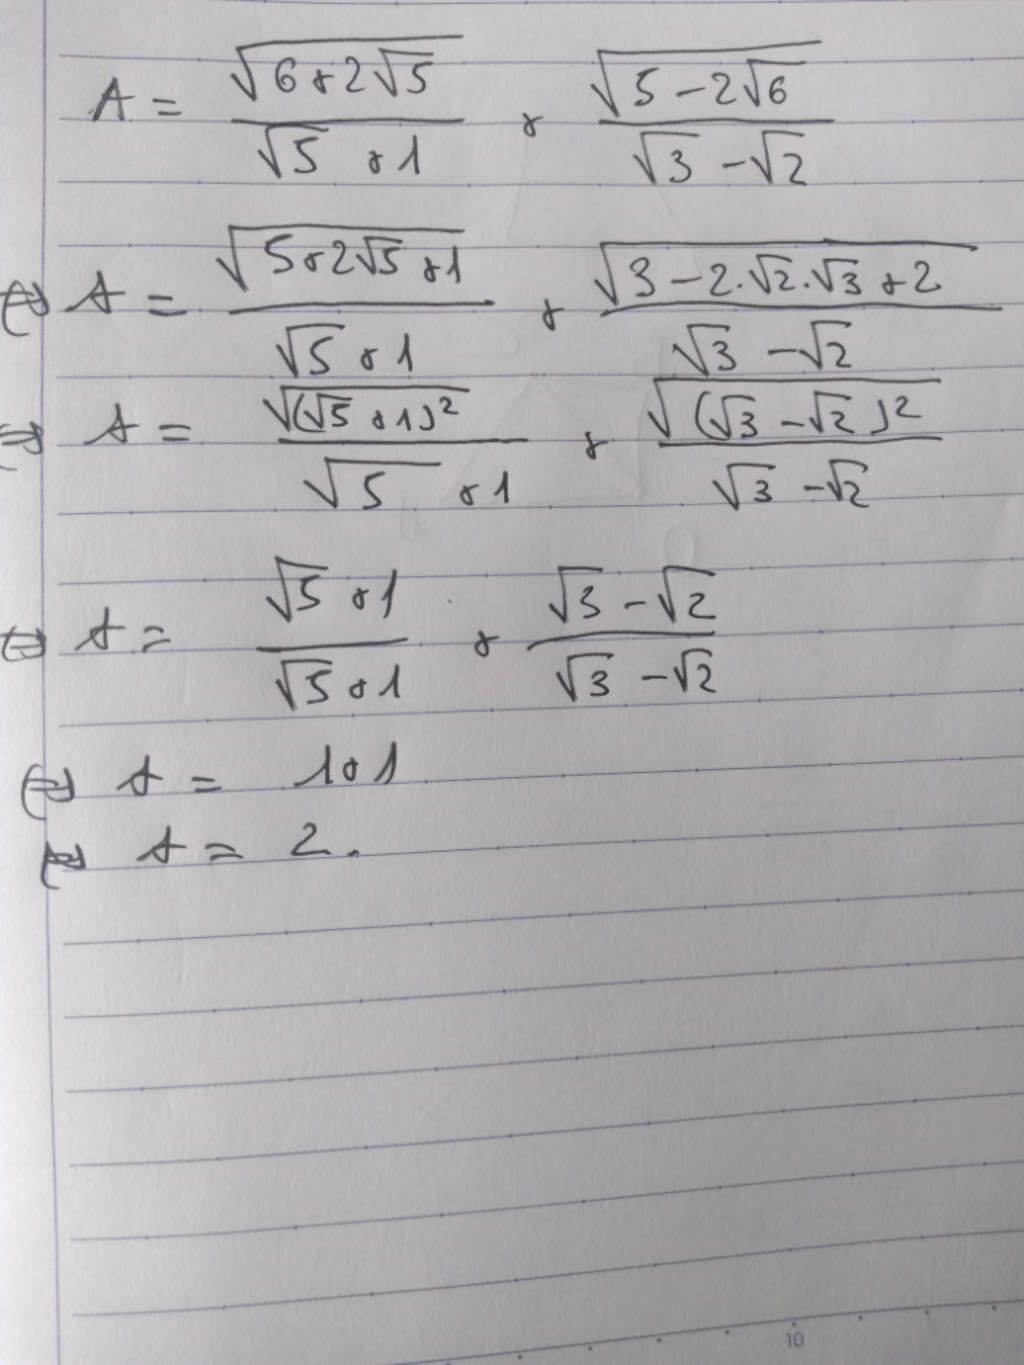 A = √(6+2√5) / (√5 + 1) + √(5-2√6) / (√3 - √2)
⇔ A = √(5+2√5+1) / (√5 + 1) + √(3-2.√2.√3+2) / (√3 - √2)
⇔ A = √((√5 + 1)²) / (√5 + 1) + √((√3 - √2)²) / (√3 - √2)
⇔ A = (√5 + 1) / (√5 + 1) + (√3 - √2) / (√3 - √2)
⇔ A = 1+1
⇔ A = 2.
10